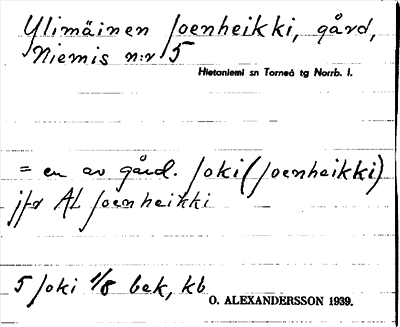 Ylimäinen Joenheikki, gård,
Niemis n:r 5
Hietaniemi sn Torneå tg Norrb. l.
= en av gård. Joki (Joenheikki)
jfr AL Joenheikki
5 Joki 1/8 bek, kb
O. ALEXANDERSSON 1939.